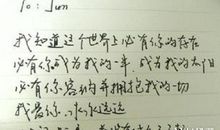 To: Jun
我知道这个世界上必有你的存在
必有你成为我的一半,成为我的太阳
必有你容纳并拥抱我的一切
我爱你,永永远远